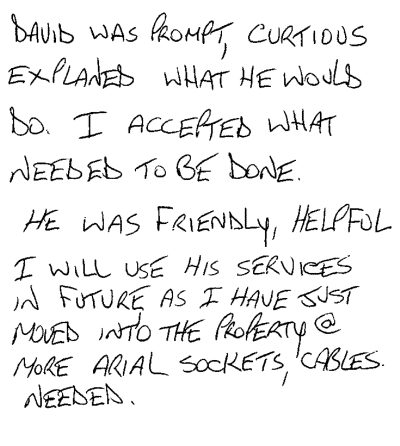 DAVID WAS PROMPT, CURTIOUS
EXPLANED WHAT HE WOULD
DO. I ACCEPTED WHAT
NEEDED TO BE DONE.
HE WAS FRIENDLY, HELPFUL
I WILL USE HIS SERVICES
IN FUTURE AS I HAVE JUST
MOVED INTO THE PROPERTY @
MORE ARIAL SOCKETS, CABLES.
NEEDED.